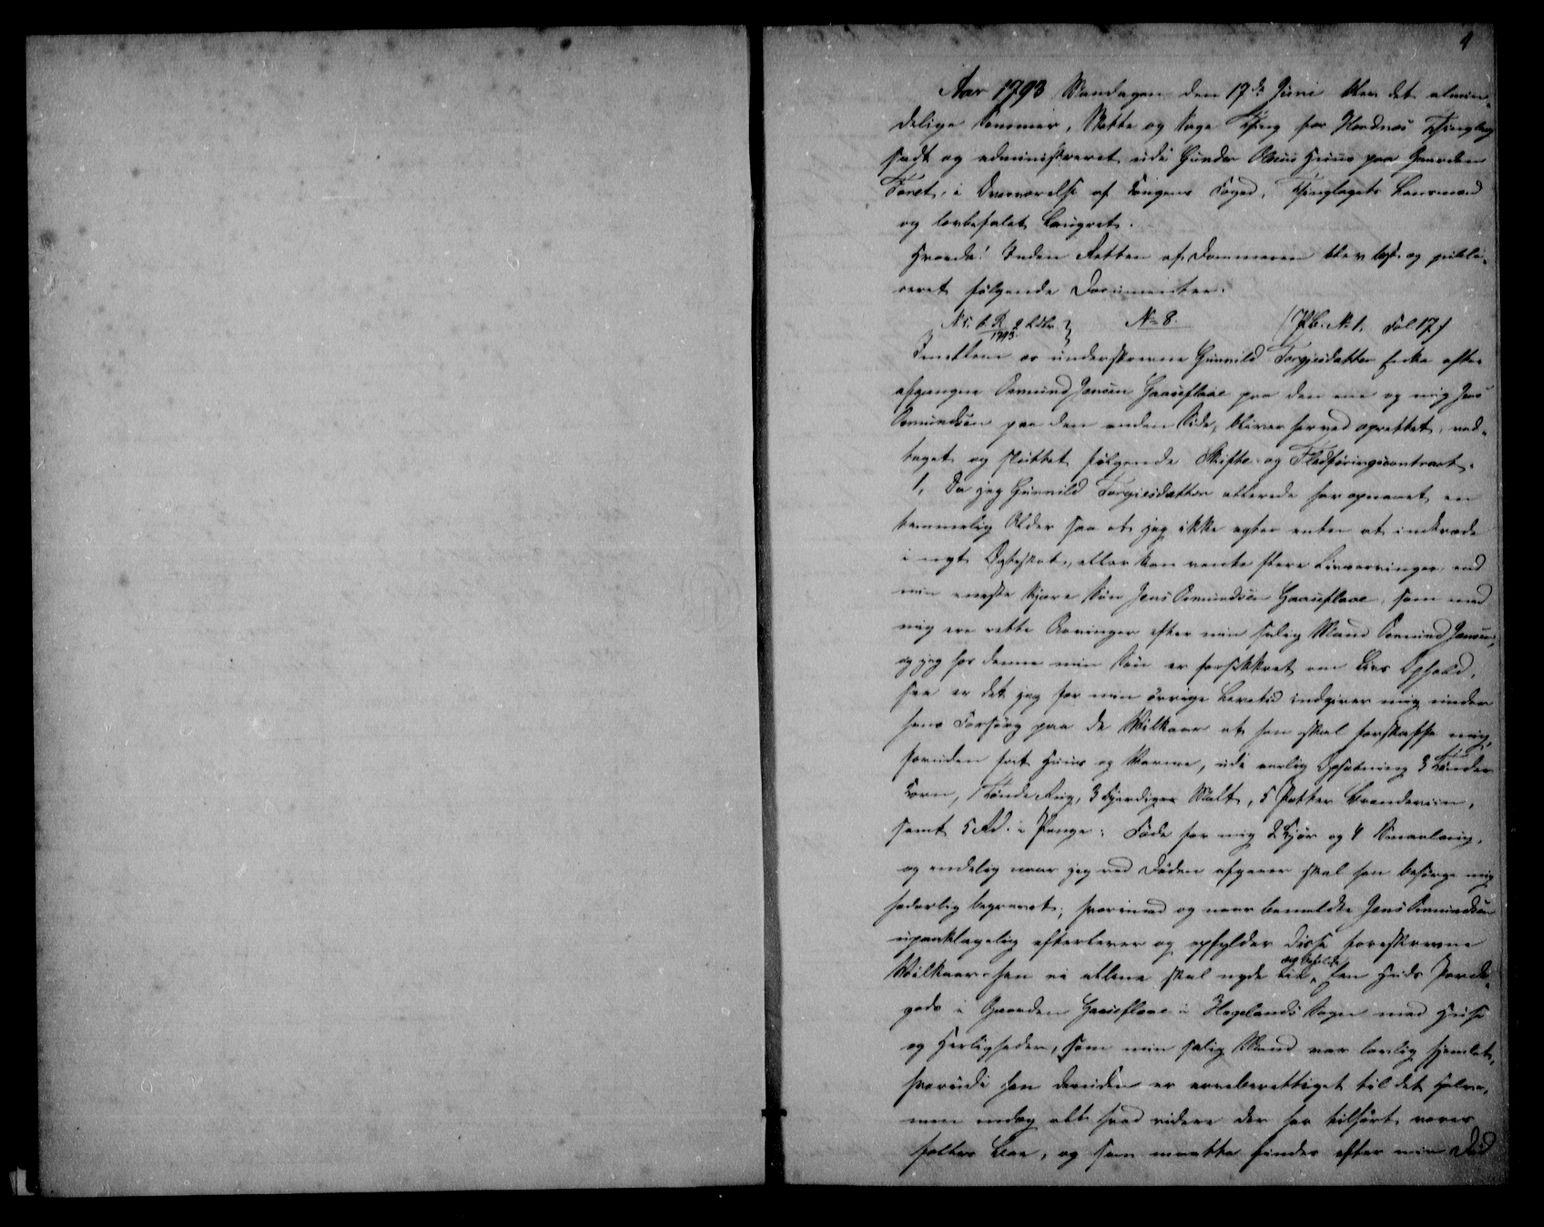 4
Aar 1793 Mandagen den 17de Juni blev det almin-
delige Sommer, Skatte og Sage Ting for Hordnæs Thinglag
sadt og administreret udi Gunder Olsens Huus paa Gaarden
Foret, i Overværelse af Kongens Foged, Thinglagets Lensmand
og lovbefalet Laugret.
Hvorda! Inden Retten af Dommeren blev læst og publi-
ceret følgende Documenter.
No 8. Pb. No 1. Fol 17
Imellem os underskrevne Gunnild Torgiesdatter Enke efter
afgangne Osmund Jensen Haaieflaae paa den ene og mig Jens
Osmundsen paa den anden Side, bliver herved oprettet, ved-
taget og sluttet følgende Skifte og Fledføringscontract.
1, Da jeg Gunnild Torgiesdatter allerede har opnaaet en
temmelig Alder saa at jeg ikke agter enten at indtræde
i nyt Ægteskab, eller kan vente flere Livsarvinger end
min eneste kjære Søn Jens Osmundsen Haaieflaae, som med
mig ere rette Arvinger efter min salig Mand Osmund Jensen,
og jeg hos denne min Søn er forsikkret om Livs Ophold,
saa er det jeg for min øvrige Levetid indgiver mig under
hans Forsorg paa de Vilkaar at han skal forskaffe mig,
foruden frit Huus og Varme, udi aarlig Opholdning 3 Tønder
Korn, 1 Tønde Rug, 3 Fjerdinger Malt, 5 Potter Brændeviin,
samt 5 Rd. i Penge; Føde for mig 2 Kjør og 4 Smaalæing,
og endelig naar jeg ved Døden afgaaer skal han besørge mig
hæderlig begravet; hvorimod og naar bemeldte Jens Osmundsen
upaaklagelig efterlever og opfylder disse foreskrevne
Vilkaar han ei allene skal nyde og beholde den Huds Jorde-
gods i Gaarden Haaieflaae i Hegelands Sogn med Huse
og Herligheder, som min salig Mand var lovlig hjemlet,
hvorudi han desuden er arveberettiget til det halve,
men endog alt hvad videre der har tilhørt vores
fælles Boe, og som maatte findes efter min Død